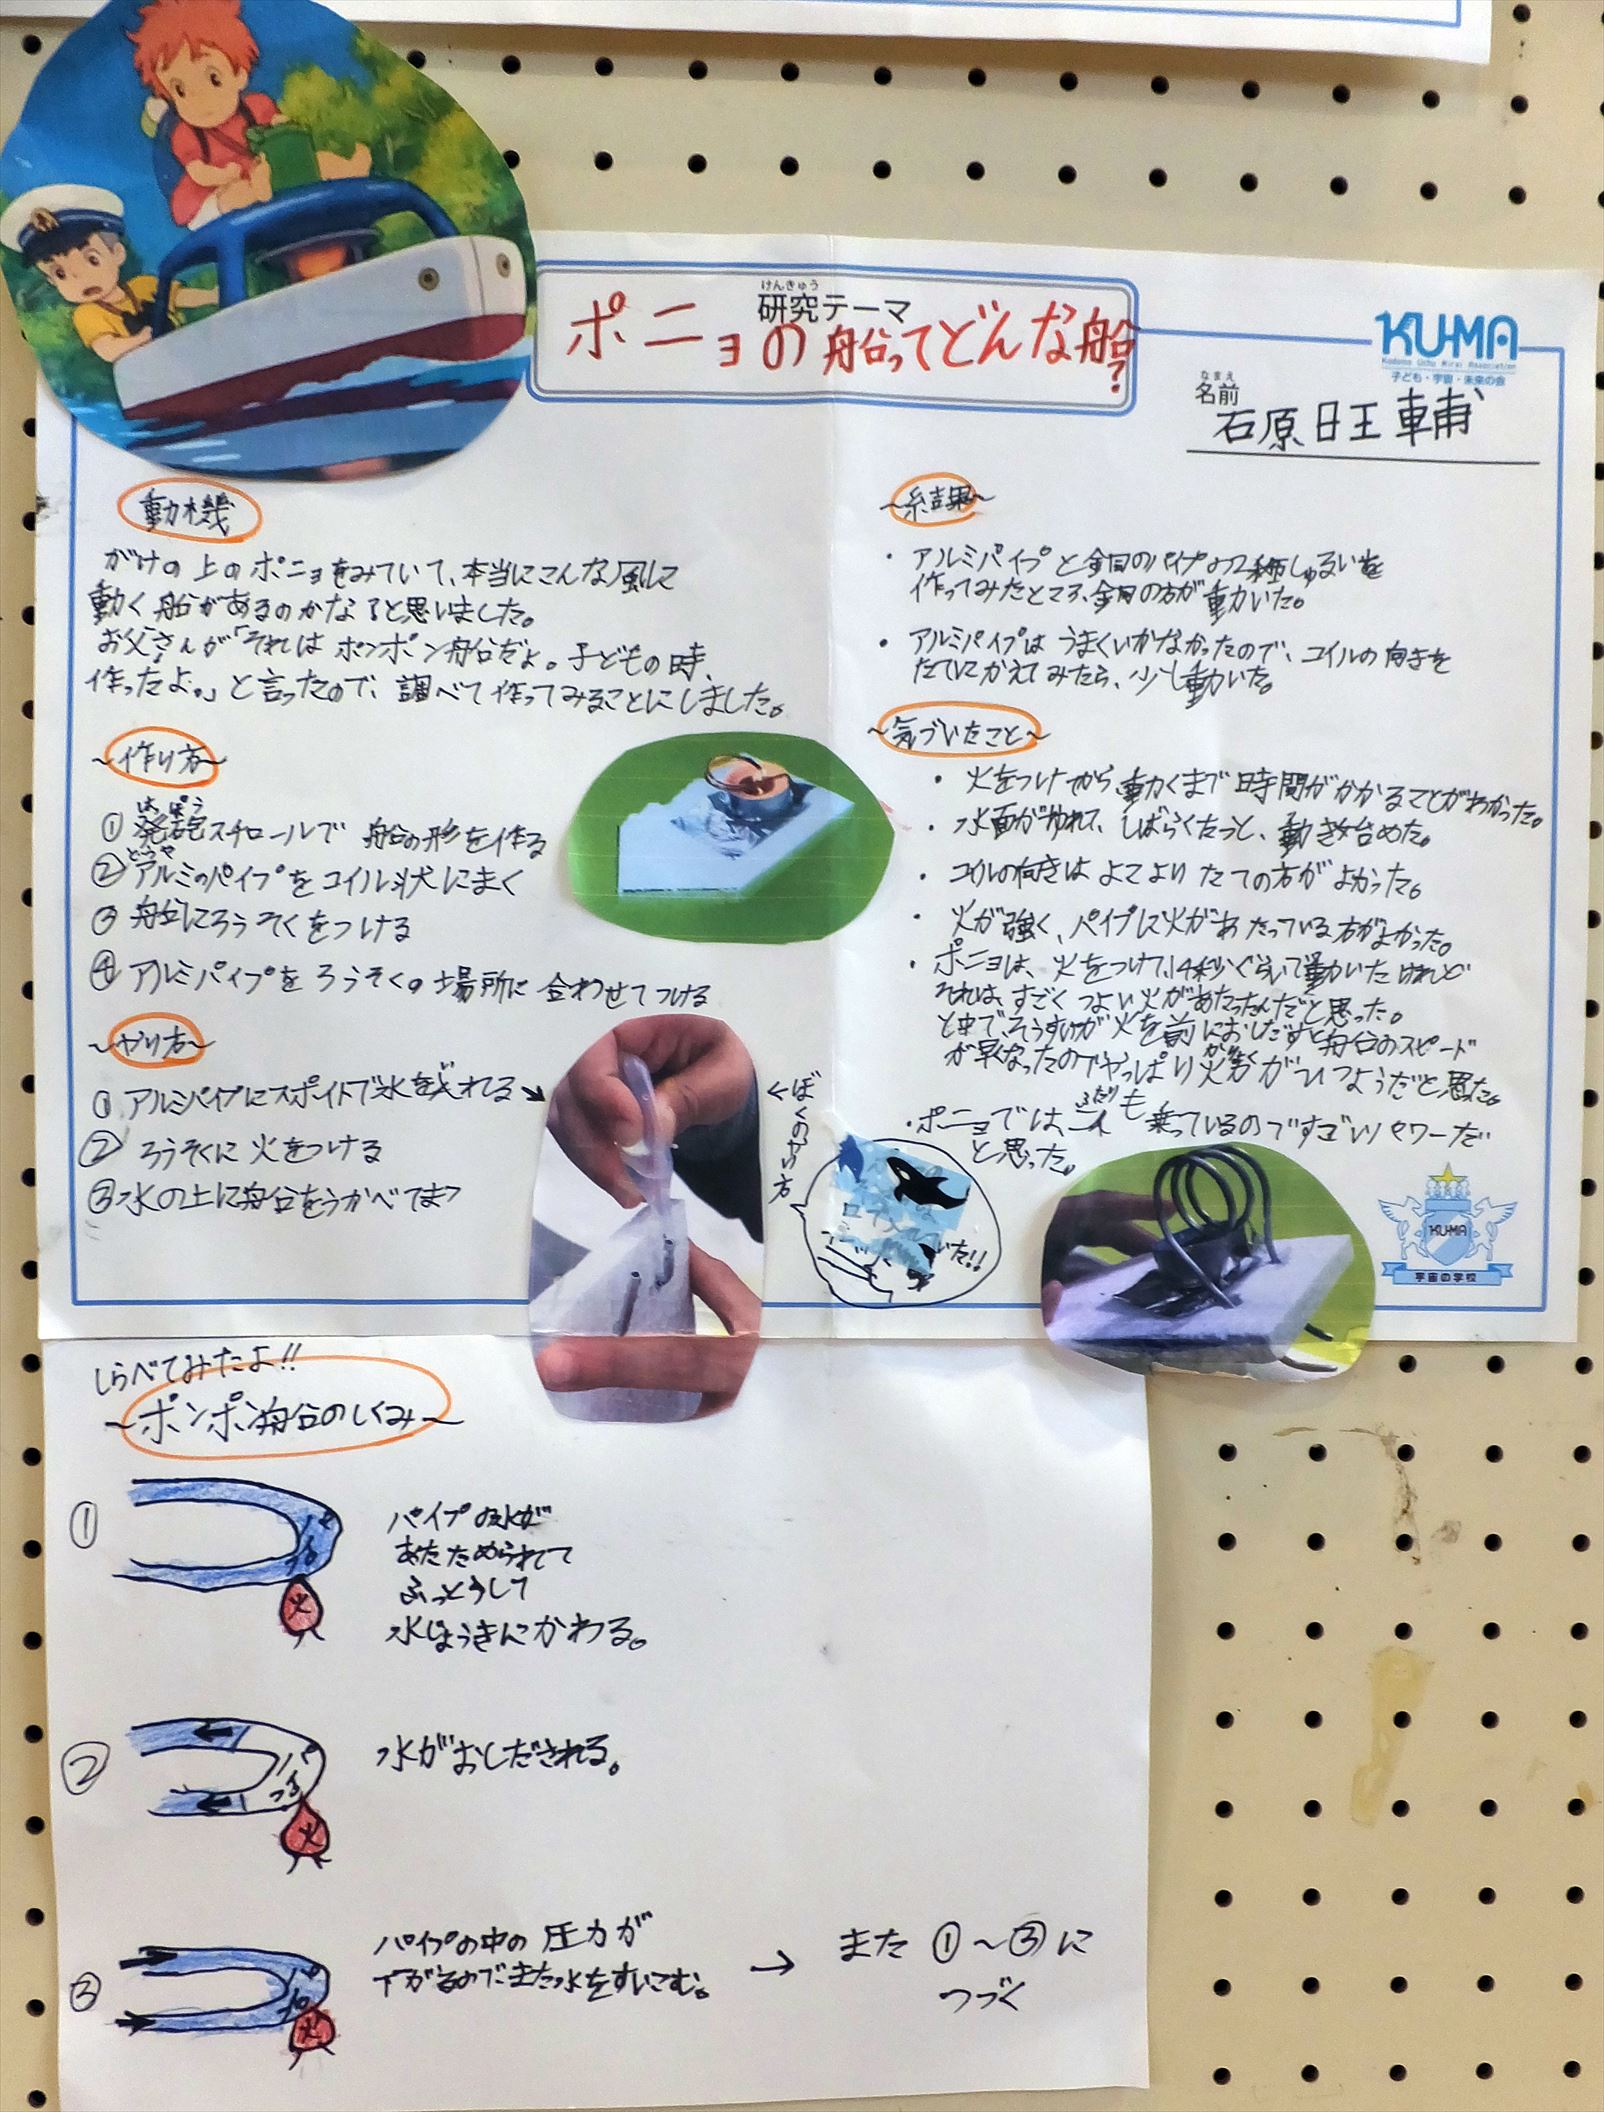 けんきゅう
研究テーマ
ポニョの船ってどんな船?
KU-MA
Kodomo Uchu Mirai Association
子ども・宇宙・未来の会
なまえ
名前
石原旺輔
動機
がけの上のポニョをみていて、本当にこんな風に
動く船があるのかな?と思いました。
お父さんが「それはポンポン船だよ。子どもの時、
作ったよ。」と言ったので、調べて作ってみることにしました。
~作り方~
はっぽう
①発泡スチロールで 船の形を作る
②アルミのパイプをコイル状にまく
③船にろうそくをつける
④アルミパイプをろうそくの場所に合わせてつける
~やり方~
①アルミパイプにスポイトで水を入れる→
②ろうそくに火をつける
③水の上に船をうかべてまつ
~結果~
・アルミパイプと銅のパイプの2種しゅるいを
作ってみたところ、銅の方が動いた。
・アルミパイプはうまくいかなかったので、コイルの向きを
たてにかえてみたら、少し動いた。
~気づいたこと~
・火をつけてから動くまで時間がかかることがわかった。
・水面がゆれて、しばらくたつと、動き始めた。
・コイルの向きはよこよりたての方がよかった。
・火が強く、パイプに火があたっている方がよかった。
・ポニョは、火をつけて、14秒ぐらいで動いたけれど
それは、すごくつよい火があたったんだと思った。
と中で、そうすけが火を前におしだすと船のスピード
が早くなったのでやっぱり火力がひつようだと思った。
ふたり
・ポニョでは、二人も乗っているのですごいパワーだ
と思った。
←ぼくのやり方
いた!!
KU-MA
宇宙の学校
しらべてみたよ!!
~ポンポン船のしくみ~
①
火
パイプの水が
あたためられて
ふっとうして
水じょうきにかわる。
②
火
水がおしだされる。
③
火
パイプの中の圧力が
下がるのでまた水をすいこむ。
→ また①~③に
つづく